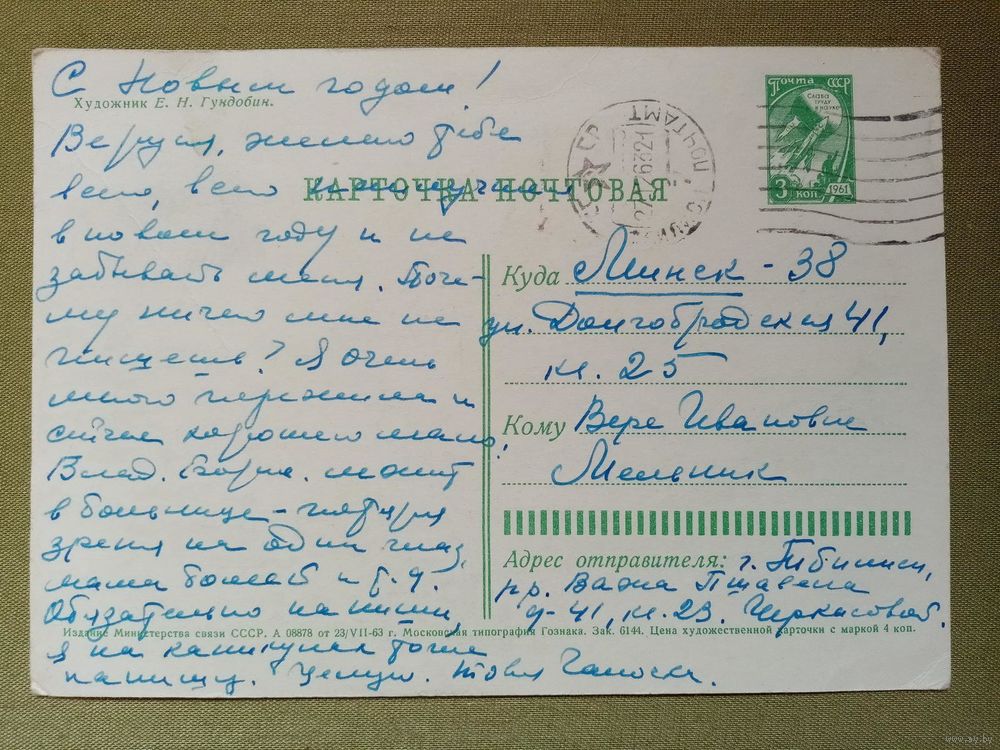 С Новым годом!
Художник Е. Н. Гундобин.
Веруся, желаю тебе
всего, всего наилучшего
в новом году и не
забывать меня. Поче-
му ничего мне не
пишешь? Я очень
много пережила и
сейчас хорошего мало,
Влад. Борис. лежит
в больнице – потерял
зрение на один глаз,
мама болеет и т. д.
Обязательно напиши,
я на каникулах тоже
напишу. Целую. Твоя Галочка.
КАРТОЧКА ПОЧТОВАЯ
Почта СССР
Слава труду и науке
3 коп 1961
ПОЧТАМТ
ТБИЛИСИ
Куда Минск - 38
ул. Долгобродская 41,
кв. 25
Кому Вере Ивановне
Мельник
Адрес отправителя: г. Тбилиси,
пр. Важа Пшавела
д-41, кв. 23. Черкасовой.
Издание Министерства связи СССР. А 08878 от 23/VII-63 г. Московская типография Гознака. Зак. 6144. Цена художественной карточки с маркой 4 коп.
www.ay.by